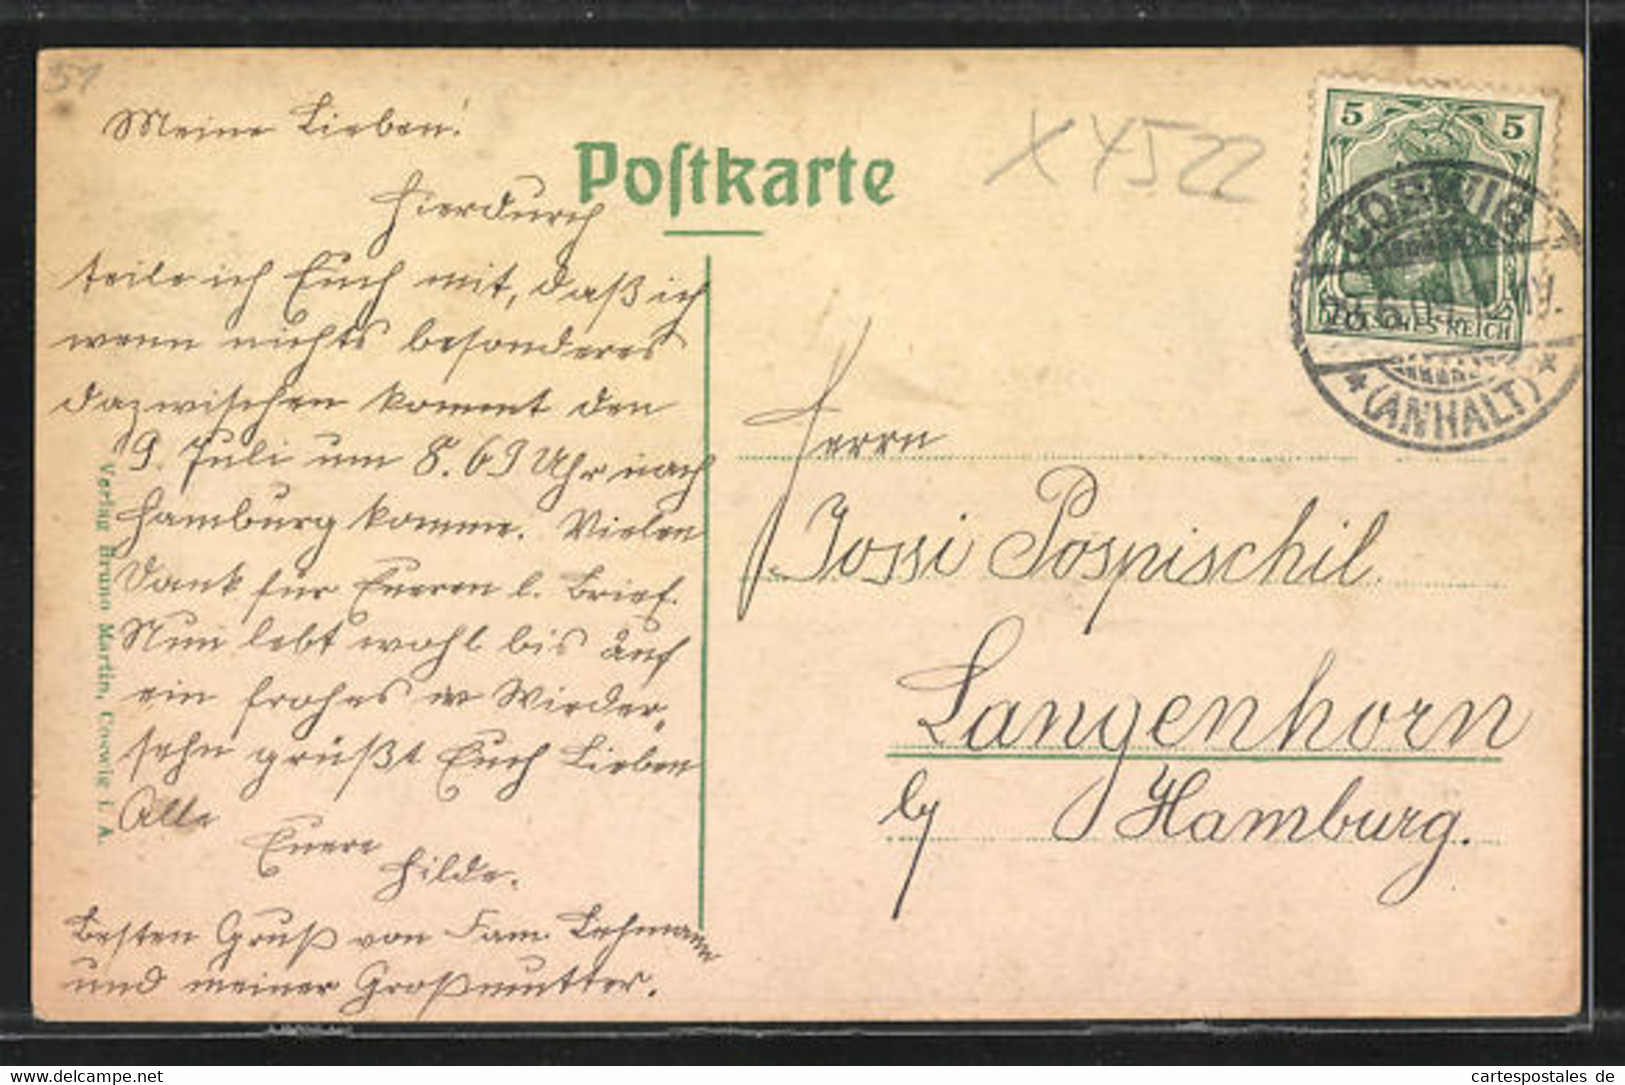 51
Meine Lieben!
Postkarte
X 4522
Hierdurch
teile ich Euch mit, daß ich
wenn nichts besonderes
dazwischen kommt den
9. Juli um 8.69 Uhr nach
Hamburg komme. Vielen
Dank für Eueren l. Brief.
Nun lebt wohl bis auf
ein frohes Wieder-
sehn grüßt Euch Lieben
Alle
Euere
Hilde.
Besten Gruß von Fam. Lehmann
und meiner Großmutter.
Verlag Bruno Martin, Coswig i. A.
5 5
DEUTSCHES REICH
COSWIG
(ANHALT)
Herrn
Jossi Pospischil
Langenhorn
b/ Hamburg.
www.delcampe.net
cartespostales de